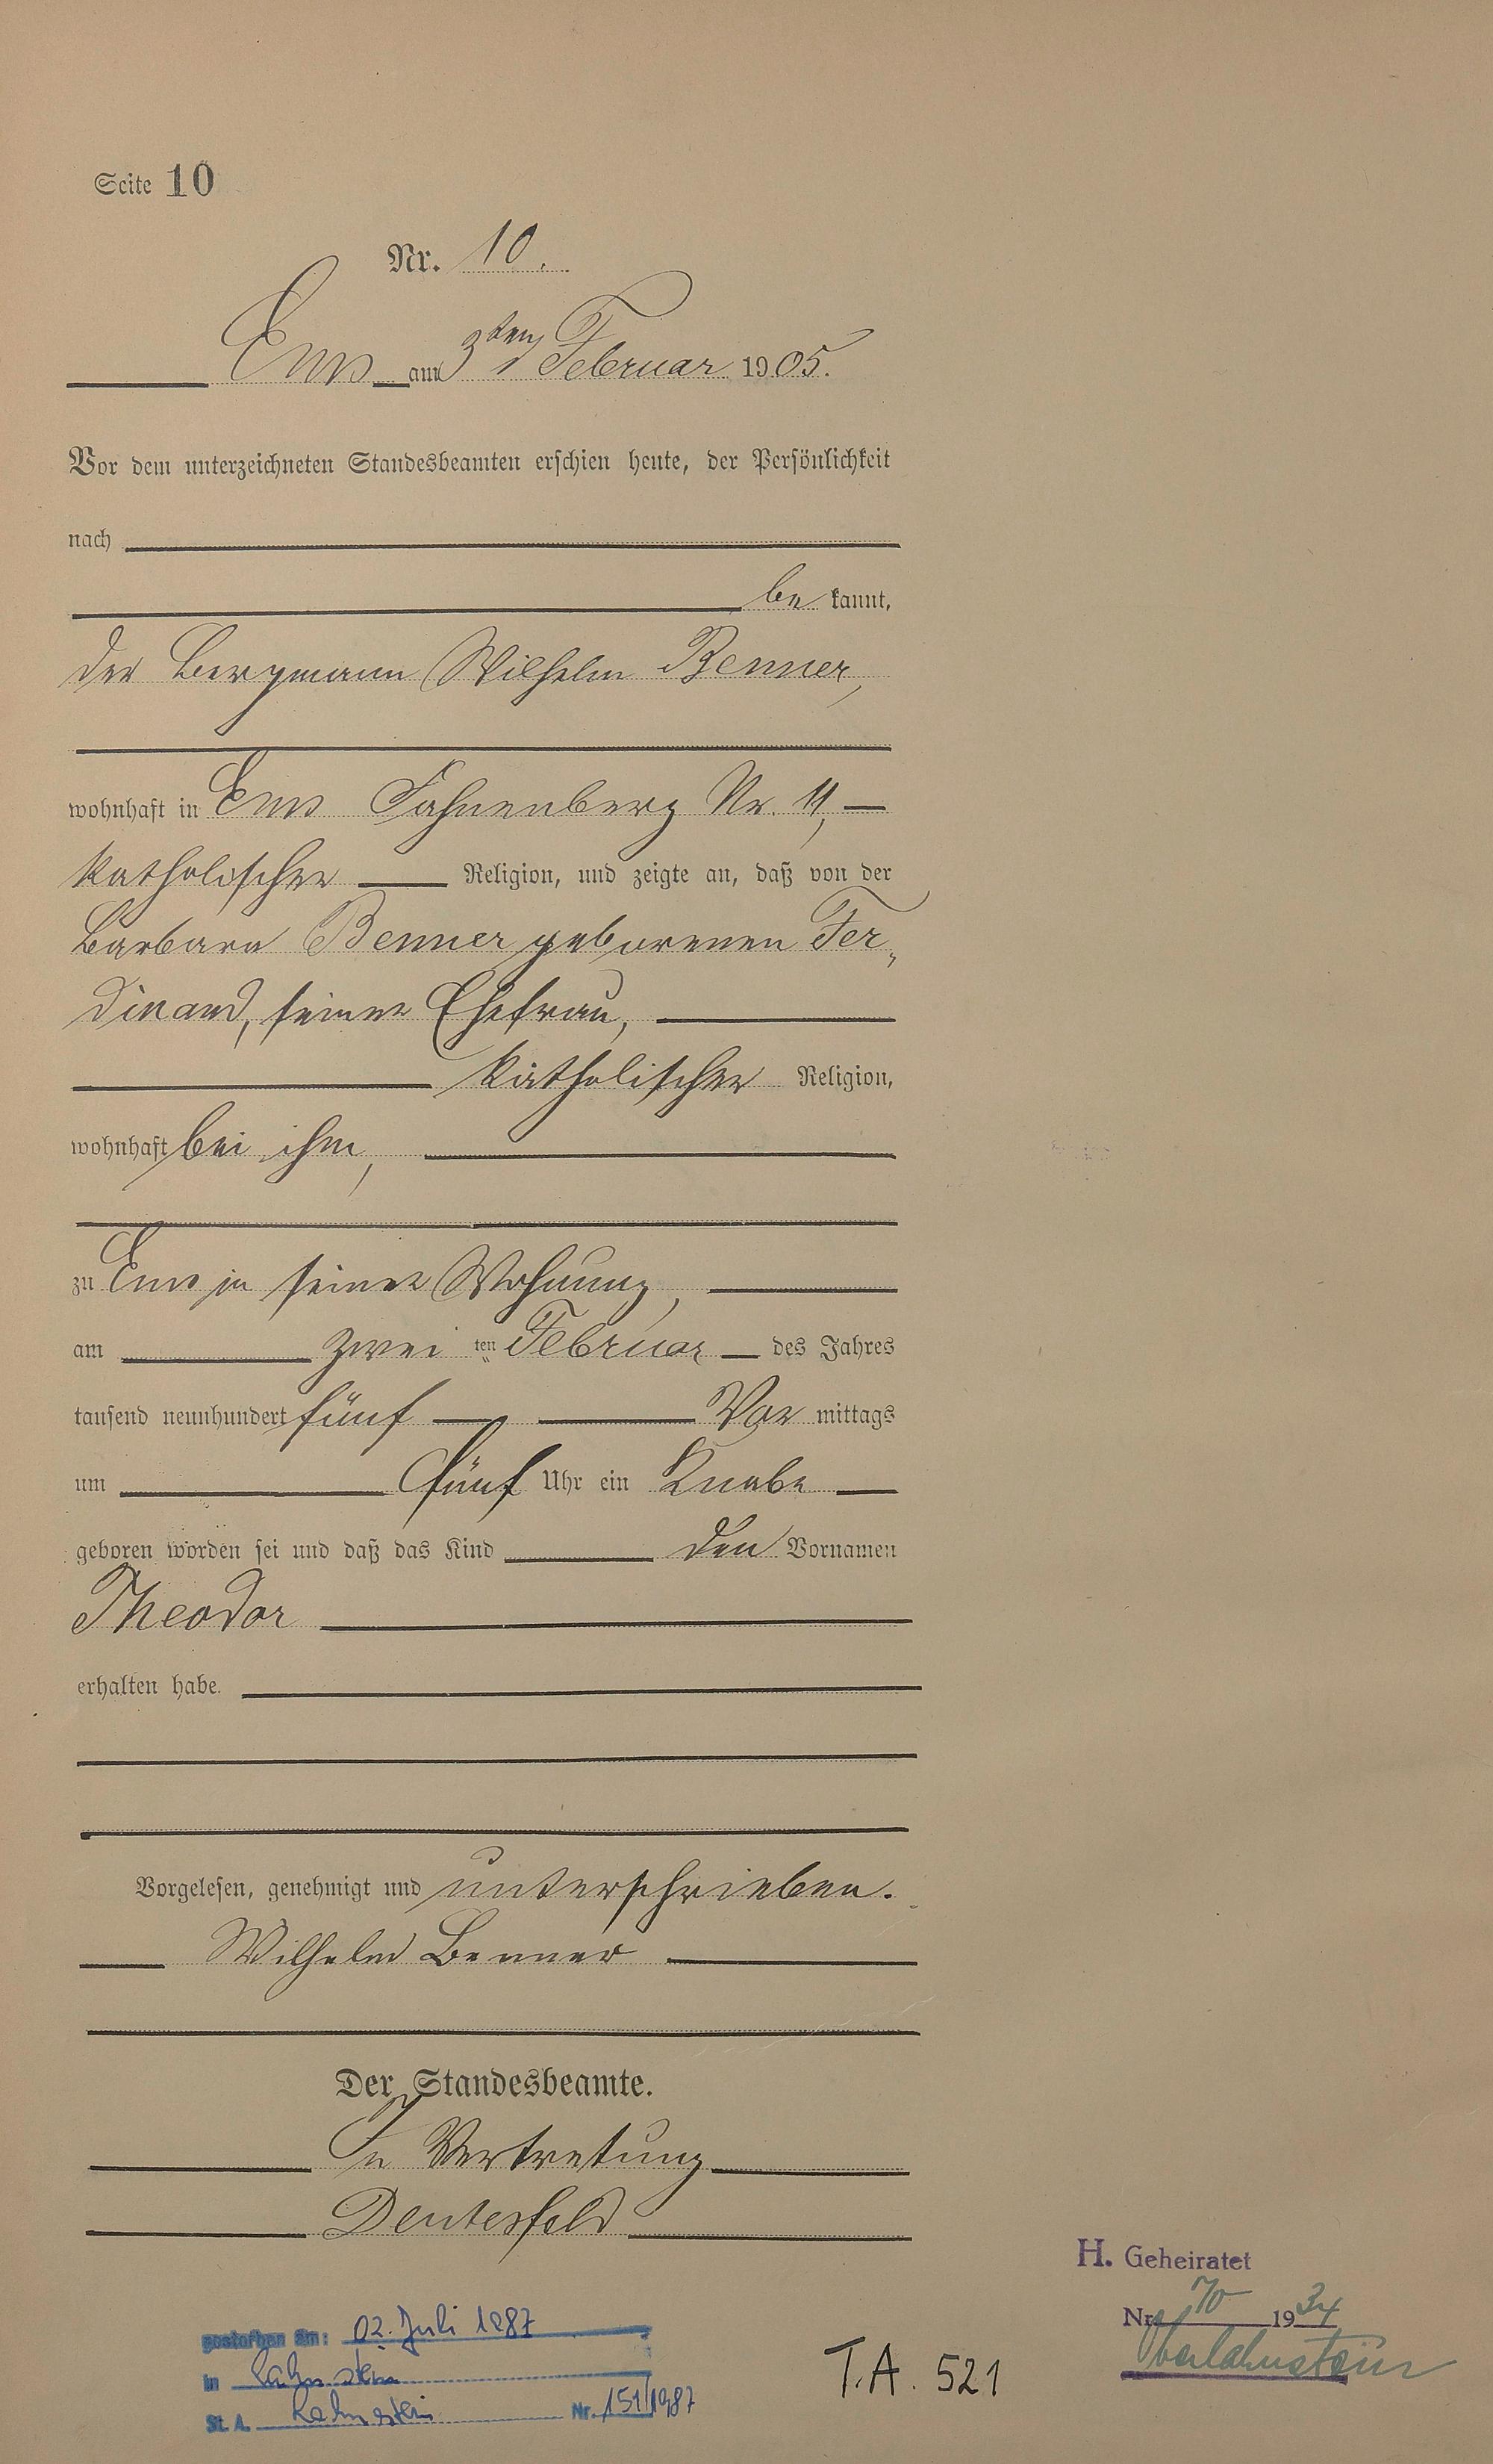 Seite 10
Nr. 10.
Ems am 3ten Februar 1905.
Vor dem unterzeichneten Standesbeamten erschien heute, der Persönlichkeit
nach
be kannt,
der Bergmann Wilhelm Benner,
wohnhaft in Ems Fahnenberg Nr. 11,
katholischer Religion, und zeigte an, daß von der
Barbara Benner geborenen Fer-
dinand, seiner Ehefrau,
katholischer Religion,
wohnhaft bei ihm,
zu Ems in seiner Wohnung,
am zwei ten Februar des Jahres
tausend neunhundert fünf Vor mittags
um fünf Uhr ein Knabe
geboren worden sei und daß das Kind den Vornamen
Theodor
erhalten habe.
Vorgelesen, genehmigt und unterschrieben.
Wilhelm Benner
Der Standesbeamte.
In Vertretung
H. Geheiratet
Nr. 70 1934
Oberlahnstein
gestorben am: 02. Juli 1987
in Lahnstein
St. A. Lahnstein Nr. 151/1987
T.A. 521